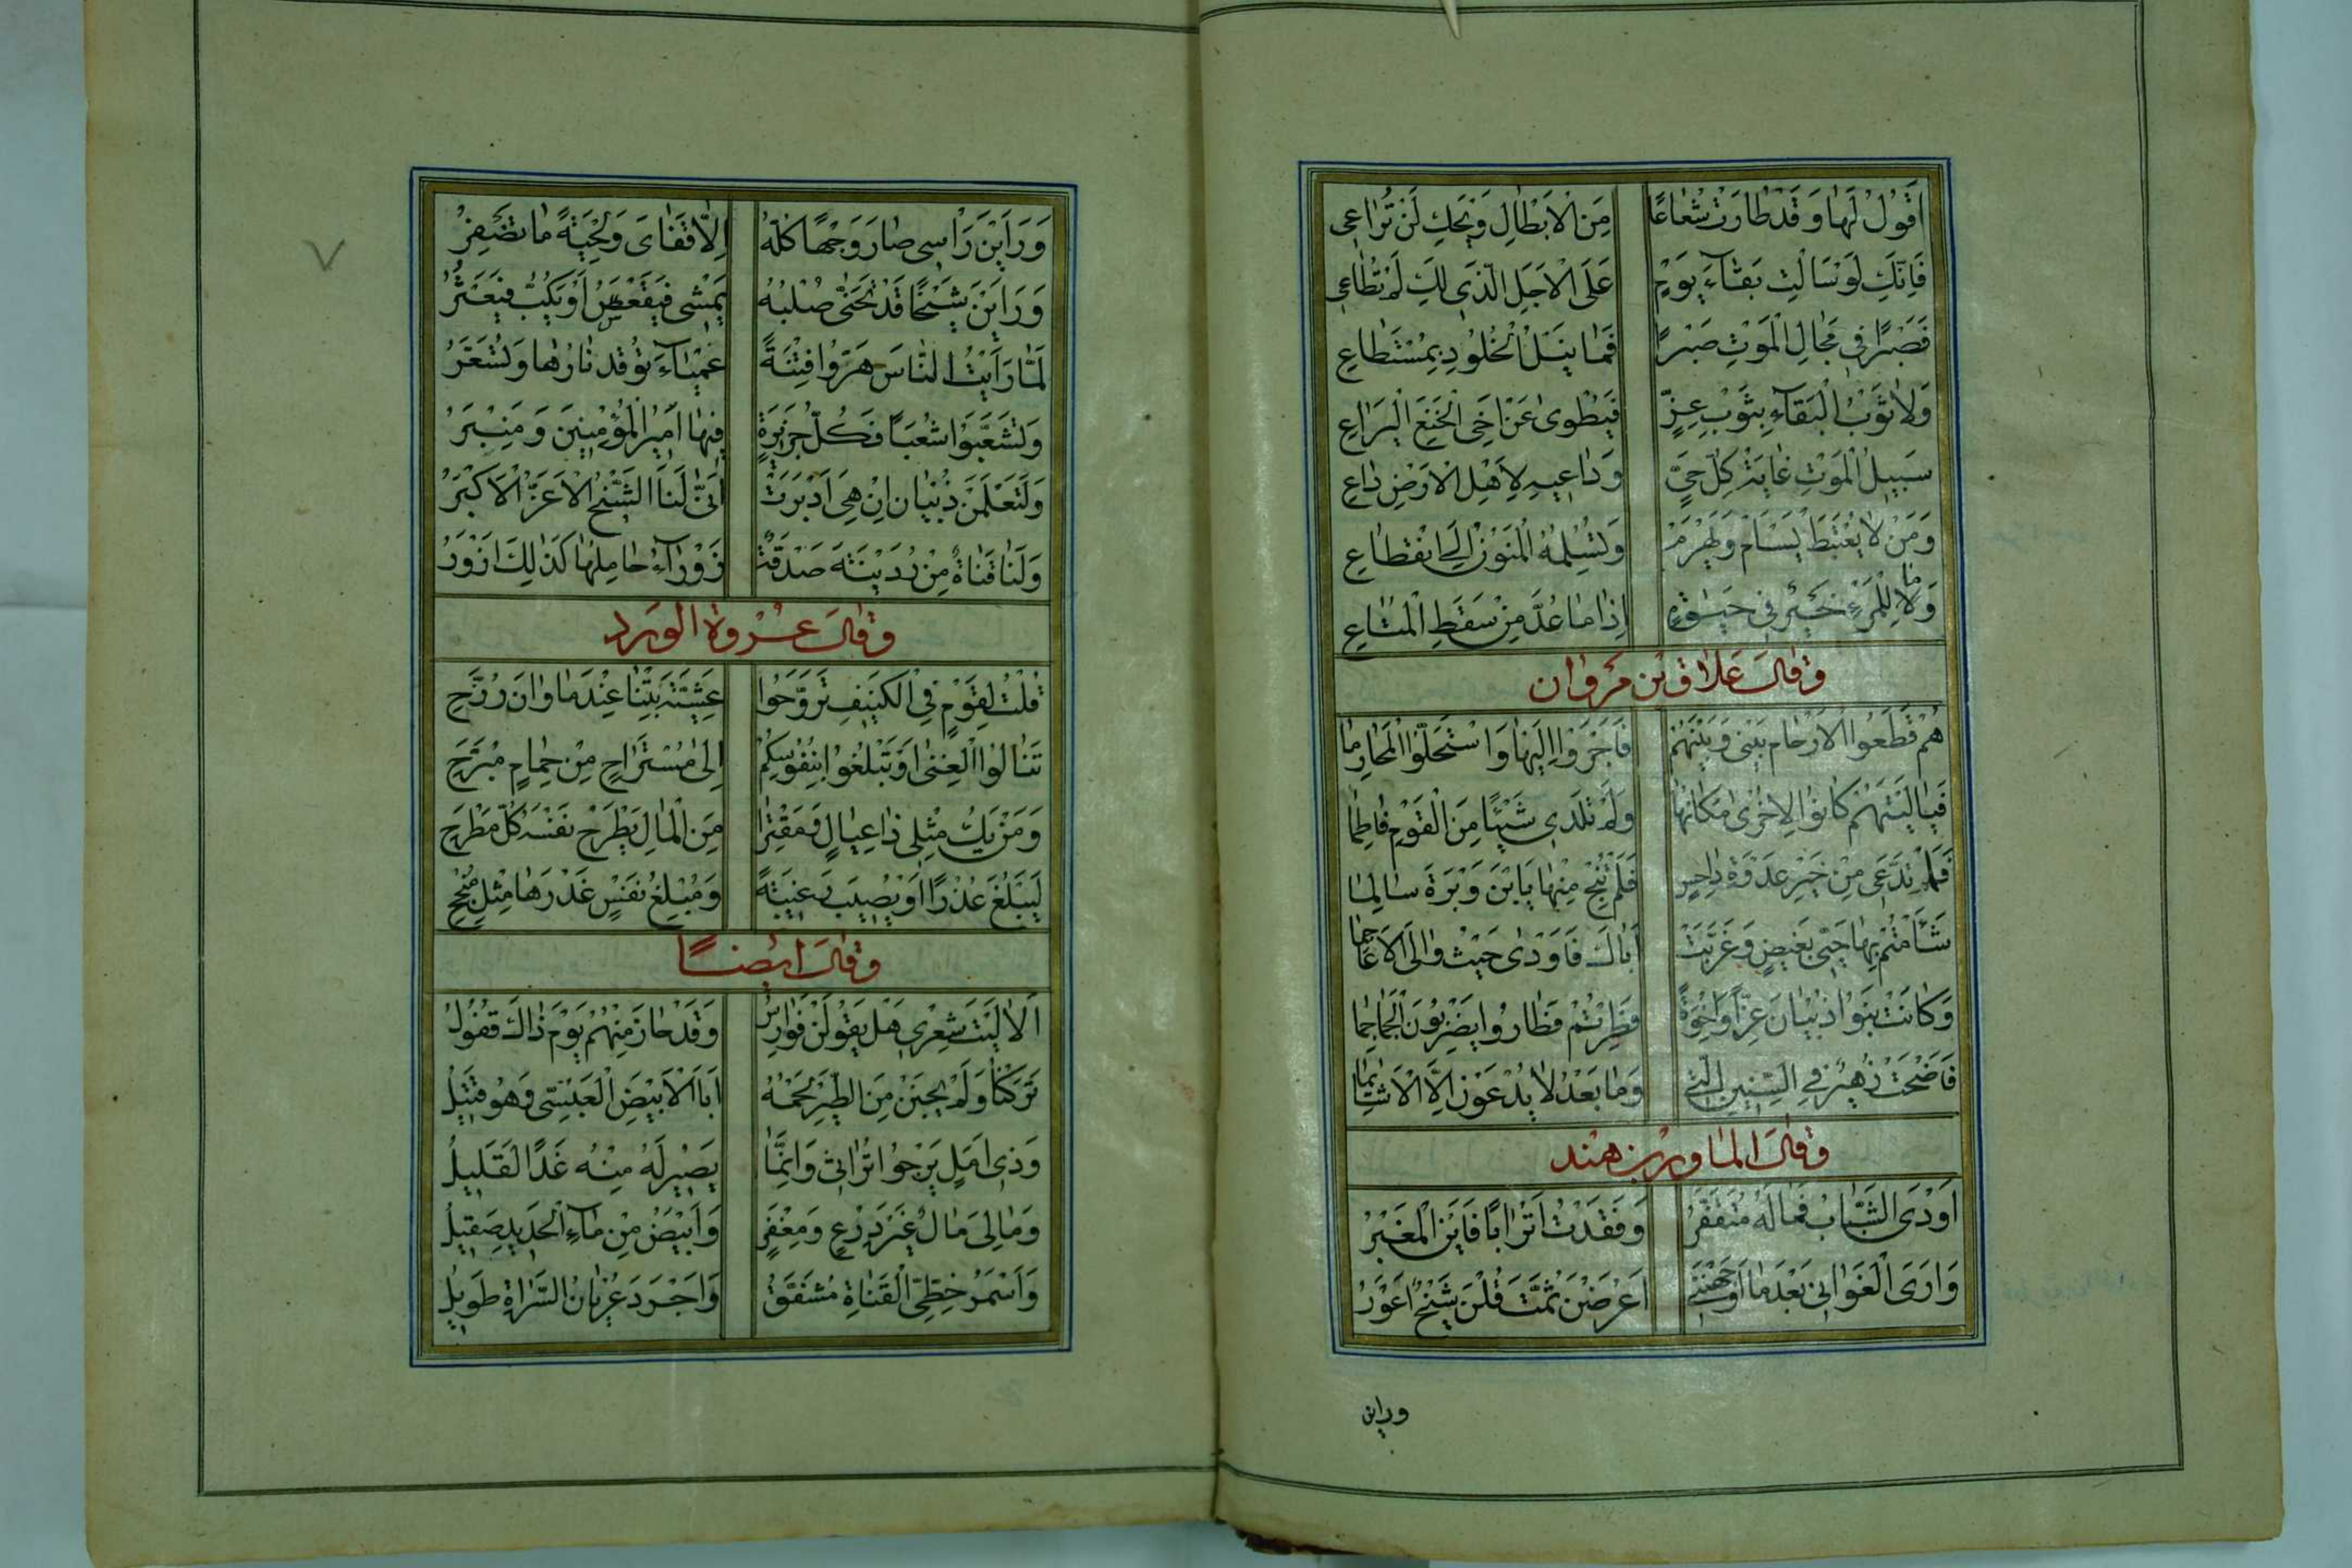 اَقُولُ لَهَا وَقَدْ طَارَتْ شُعَاعًا مِنَ الْاَبْطَالِ وَيْحَكِ لَنْ تُرَاعِي
فَاِنَّكِ لَوْ سَاَلْتِ بَقَاءَ يَوْمٍ عَلَى الْاَجَلِ الَّذِي لَكِ لَمْ تُطَاعِي
فَصَبْرًا فِي مَجَالِ الْمَوْتِ صَبْرًا فَمَا نَيْلُ الْخُلُودِ بِمُسْتَطَاعِ
وَلَا ثَوْبُ الْبَقَاءِ بِثَوْبِ عِزٍّ فَيُطْوَى عَنْ اَخِي الْخَنَعِ الْيَرَاعِ
سَبِيلُ الْمَوْتِ غَايَةُ كُلِّ حَيٍّ وَدَاعِيهِ لِاَهْلِ الْاَرْضِ دَاعِ
وَمَنْ لَا يُعْتَبَطْ يَسْاَمْ وَيَهْرَمْ وَتُسْلِمْهُ الْمَنُونُ اِلَى انْقِطَاعِ
وَمَا لِلْمَرْءِ خَيْرٌ فِي حَيٰوةٍ اِذَا مَا عُدَّ مِنْ سَقَطِ الْمَتَاعِ
وقال علاق بن مروان
هُمْ قَطَعُوا الْاَرْحَامَ بَيْنِي وَبَيْنَهُمْ فَاَجْرَوْا اِلَيْهَا وَاسْتَحَلُّوا الْمَحَارِمَا
فَيَا لَيْتَهُمْ كَانُوا لِاُخْرٰى مَكَانَهَا وَلَمْ تَلِدِي شَيْئًا مِنَ الْقَوْمِ فَاطِمَا
فَلَمْ تَدَّعِي مِنْ خَيْرِ عَدْوَةِ دَاحِسٍ فَلَمْ تَنْجُ مِنْهَا يَابْنَ وَبْرَةَ سَالِمَا
شَاَمْتُمْ بِهَا حَيَّيْ بَغِيضٍ وَغَرَّبَتْ اَبَاكَ فَاَوْدٰى حَيْثُ وَالَى الْاَعَاجِمَا
وَكَانَتْ بَنُوا ذُبْيَانَ عِزًّا وَاِخْوَةً فَطِرْتُمْ فَطَارُوا يَضْرِبُونَ الْجَمَاجِمَا
فَاَضْحَتْ زُهَيْرٌ فِي السِّنِينَ الَّتِي وَمَا بَعْدُ لَا يُدْعَوْنَ اِلَّا الْاَشَائِمَا
وقال المساور بن هند
اَوْدَى الشَّبَابُ فَمَا لَهُ مُتَقَفَّرُ وَفَقَدْتُ اَتْرَابًا فَاَيْنَ الْمَغْبَرُ
وَاَرَى الْغَوَانِيَ بَعْدَمَا اَوْجَهْنَنِي اَعْرَضْنَ ثُمَّتَ قُلْنَ شَيْخٌ اَعْوَرُ
وراين
وَرَاَيْنَ رَاْسِي صَارَ وَجْهًا كُلُّهُ اِلَّا قَفَايَ وَلِحْيَةً مَا تُضْفَرُ
وَرَاَيْنَ شَيْخًا قَدْ تَحَنَّى صُلْبُهُ يَمْشِي فَيَقْعَسُ اَوْ يَكُبُّ فَيَعْثُرُ
لَمَّا رَاَيْتُ النَّاسَ هَرُّوا فِتْنَةً عَمْيَاءَ تُوقَدُ نَارُهَا وَتُسَعَّرُ
وَتَشَعَّبُوا شُعَبًا فَكُلُّ جَزِيرَةٍ فِيهَا اَمِيرُ الْمُؤْمِنِينَ وَمِنْبَرُ
وَلَتَعْلَمَنْ ذُبْيَانُ اِنْ هِيَ اَدْبَرَتْ اَنَّى لَنَا الشَّيْخُ الْاَعَزُّ الْاَكْبَرُ
وَلَنَا قَنَاةٌ مِنْ رُدَيْنَةَ صَدْقَةٌ زَوْرَاءُ حَامِلُهَا كَذٰلِكَ اَزْوَرُ
وقال عروة الورد
قُلْتُ لِقَوْمٍ فِي الْكَنِيفِ تَرَوَّحُوا عَشِيَّةَ بِتْنَا عِنْدَ مَاوَانَ رُزَّحِ
تَنَالُوا الْغِنٰى اَوْ تَبْلُغُوا بِنُفُوسِكُمْ اِلٰى مُسْتَرَاحٍ مِنْ حِمَامٍ مُبَرَّحِ
وَمَنْ يَكُ مِثْلِي ذَا عِيَالٍ وَمُقْتِرًا مِنَ الْمَالِ يَطْرَحْ نَفْسَهُ كُلَّ مَطْرَحِ
لِيَبْلُغَ عُذْرًا اَوْ يُصِيبَ رَغِيبَةً وَمُبْلِغُ نَفْسٍ عُذْرَهَا مِثْلُ مُنْجِحِ
وقال ايضًا
اَلَا لَيْتَ شِعْرِي هَلْ يَقُولَنْ فَوَارِسٌ وَقَدْ حَانَ مِنْهُمْ يَوْمَ ذَاكَ قُفُولُ
تَرَكْنَا وَلَمْ نُجْنِنْ مِنَ الطَّيْرِ لَحْمَهُ اَبَا الْاَبْيَضِ الْعَبْسِيَّ وَهُوَ قَتِيلُ
وَذِي اَمَلٍ يَرْجُوا تُرَاثِي وَاِنَّمَا يَصِيرُ لَهُ مِنْهُ غَدًا لَقَلِيلُ
وَمَا لِيَ مَالٌ غَيْرُ دِرْعٍ وَمِغْفَرٍ وَاَبْيَضُ مِنْ مَاءِ الْحَدِيدِ صَقِيلُ
وَاَسْمَرُ خَطِّيُّ الْقَنَاةِ مُثَقَّفٌ وَاَجْرَدُ عُرْيَانُ السَّرَاةِ طَوِيلُ